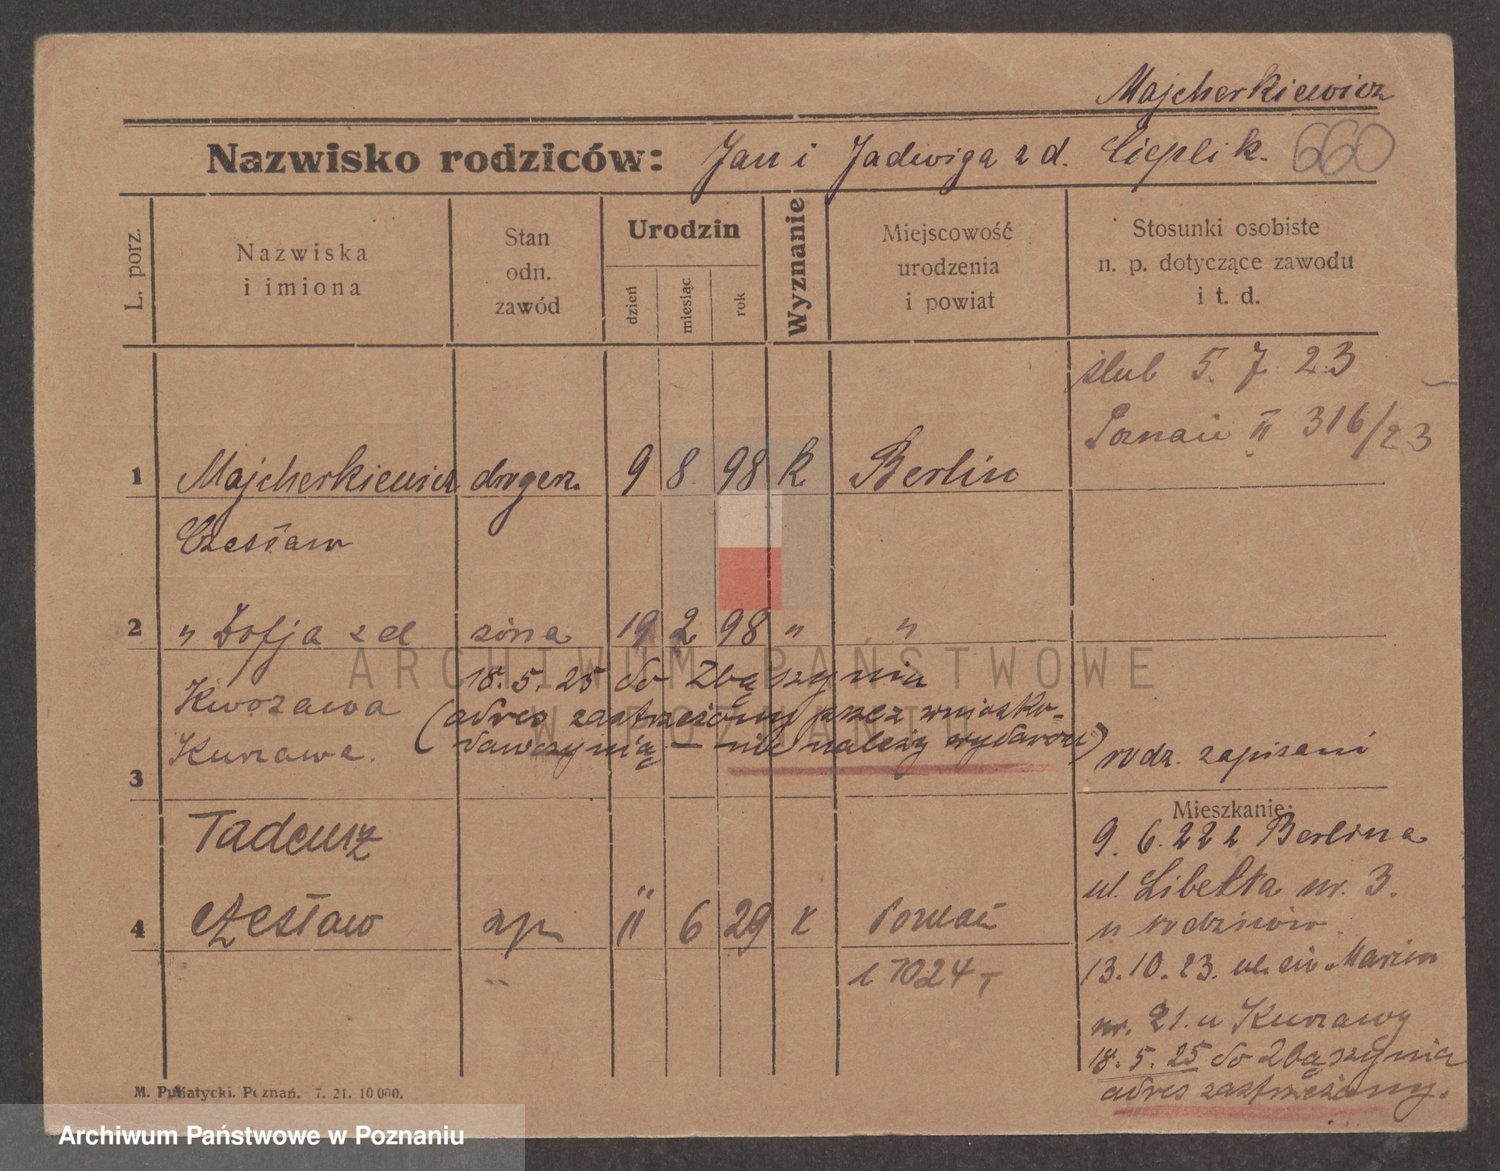 Majcherkiewicz
Nazwisko rodziców: Jan i Jadwiga z d. Cieplik. 660
L. porz.
Nazwiska i imiona
Stan odn. zawód
Urodzin
dzień miesiąc rok
Wyznanie
Miejscowość urodzenia i powiat
Stosunki osobiste n. p. dotyczące zawodu i t. d.
ślub 5. 7. 23
Poznań II 316/23
1 Majcherkiewicz drogerz. 9 8. 98 k Berlin
Czesław
2 " Zofja z d żona 19 2 98 " "
18. 5. 25 do Zbąszynia
Kworzawa
(adres zastrzeżony przez wniosko-
Kurzawa.
dawczynią — nie należy wydawać)
3 rodz. zapisani
Mieszkanie:
Tadeusz
9. 6. 22 z Berlina
ul. Libelta nr. 3.
4 Czesław 11 6 29 k Poznań
u rodziców.
17024
13. 10. 23. ul. św. Marcin
nr. 21. u Kurzawy
18. 5. 25 do Zbąszynia
adres zastrzeżony.
M. Putiatycki. Poznań. 7. 21. 10 000.
ARCHIWUM PAŃSTWOWE
W POZNANIU
Archiwum Państwowe w Poznaniu